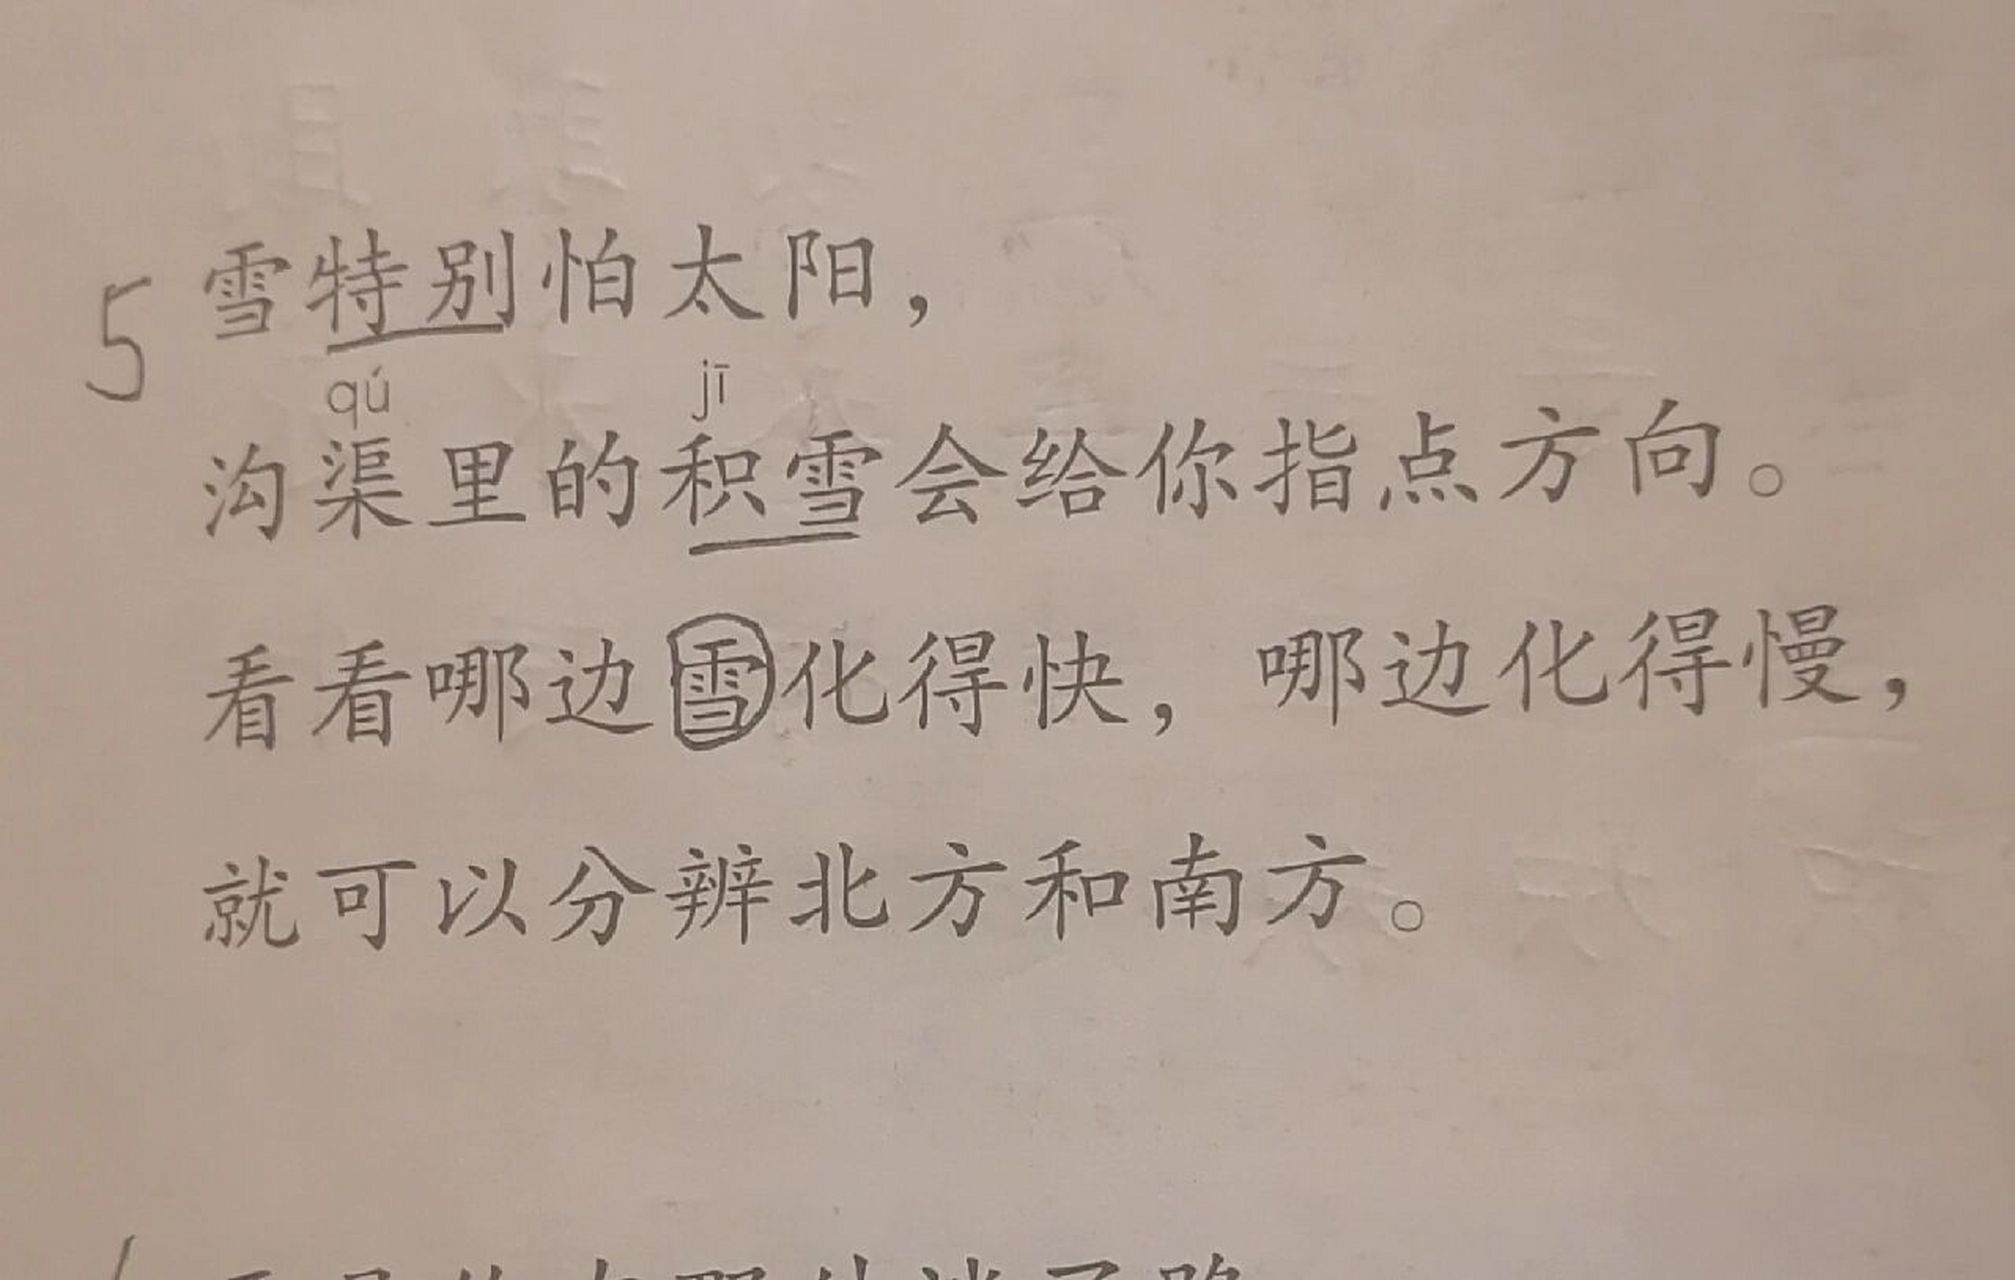 5 雪特别怕太阳，
qú jī
沟渠里的积雪会给你指点方向。
看看哪边雪化得快，哪边化得慢，
就可以分辨北方和南方。